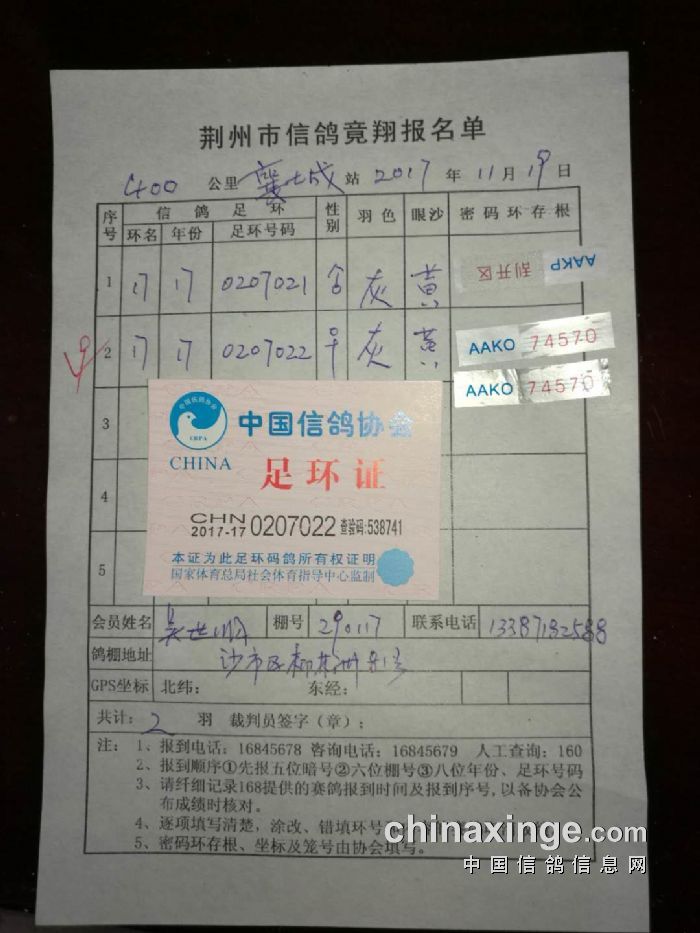 荆州市信鸽竟翔报名单
400 公里 襄城 站 2017 年 11 月 19 日
序号 信鸽足环 性别 羽色 眼沙 密码环存根
环名 年份 足环号码
1 17 17 0207021 灰 黄 刮开区 AAKP
2 17 17 0207022 早 灰 黄 AAKO 74570
AAKO 74570
3
4
5
中国信鸽协会 CRPA
中国信鸽协会
CHINA
足环证
CHN
2017-17 0207022 查验码:538741
本证为此足环码鸽所有权证明
国家体育总局社会体育指导中心监制
会员姓名 吴世 棚号 290117 联系电话 13387182588
鸽棚地址 沙市区
GPS坐标 北纬: 东经:
共计: 2 羽 裁判员签字(章):
注: 1、报到电话: 16845678 咨询电话: 16845679 人工查询: 160
2、报到顺序①先报五位暗号②六位棚号③八位年份、足环号码
3、请纤细记录168提供的赛鸽报到时间及报到序号, 以备协会公
布成绩时核对。
4、逐项填写清楚, 涂改、错填环号
5、密码环存根、坐标及笼号由协会填写。
chinaxinge.com
中国信鸽信息网